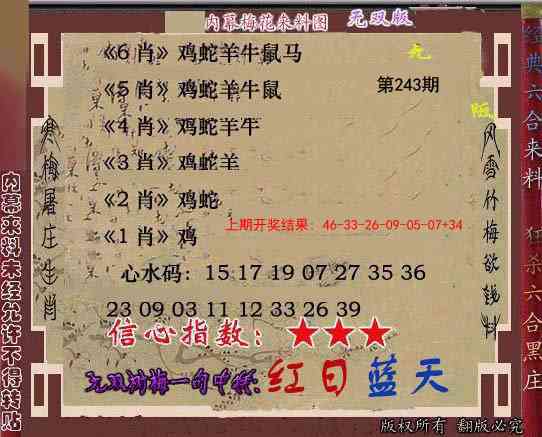 内幕梅花来料图 无双版
《6 肖》鸡蛇羊牛鼠马
《5 肖》鸡蛇羊牛鼠
第243期
《4 肖》鸡蛇羊牛
《3 肖》鸡蛇羊
《2 肖》鸡蛇
上期开奖结果：46-33-26-09-05-07+34
《1 肖》鸡
心水码：15 17 19 07 27 35 36
23 09 03 11 12 33 26 39
信心指数：★★★
无双狗梅一句中特:红日蓝天
版权所有 翻版必究
无
版
寒梅屠庄生肖
风雪竹梅欲钱料
内幕来料未经允许不得转贴
经典六合来料
狂杀六合黑庄